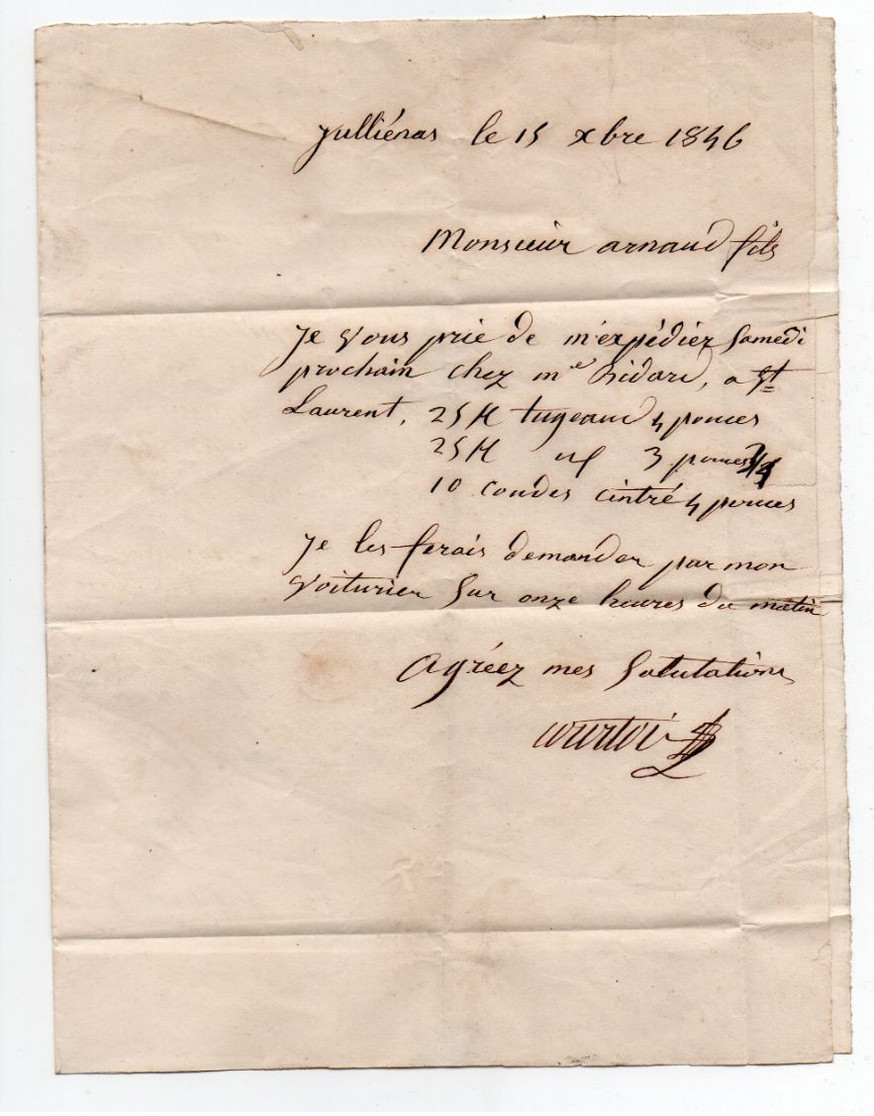 Julliénas le 15 xbre 1846
Monsieur arnaud fils
Je vous prie de m'expédiez samedi
prochain chez me Bidard, a St
Laurent, 25 M tuyeaud 4 pouces
25 M 3 pouces
10 coudes cintré 4 pouces
Je les ferais demander par mon
voiturier sur onze heures du matin
agréez mes salutations
courtoi